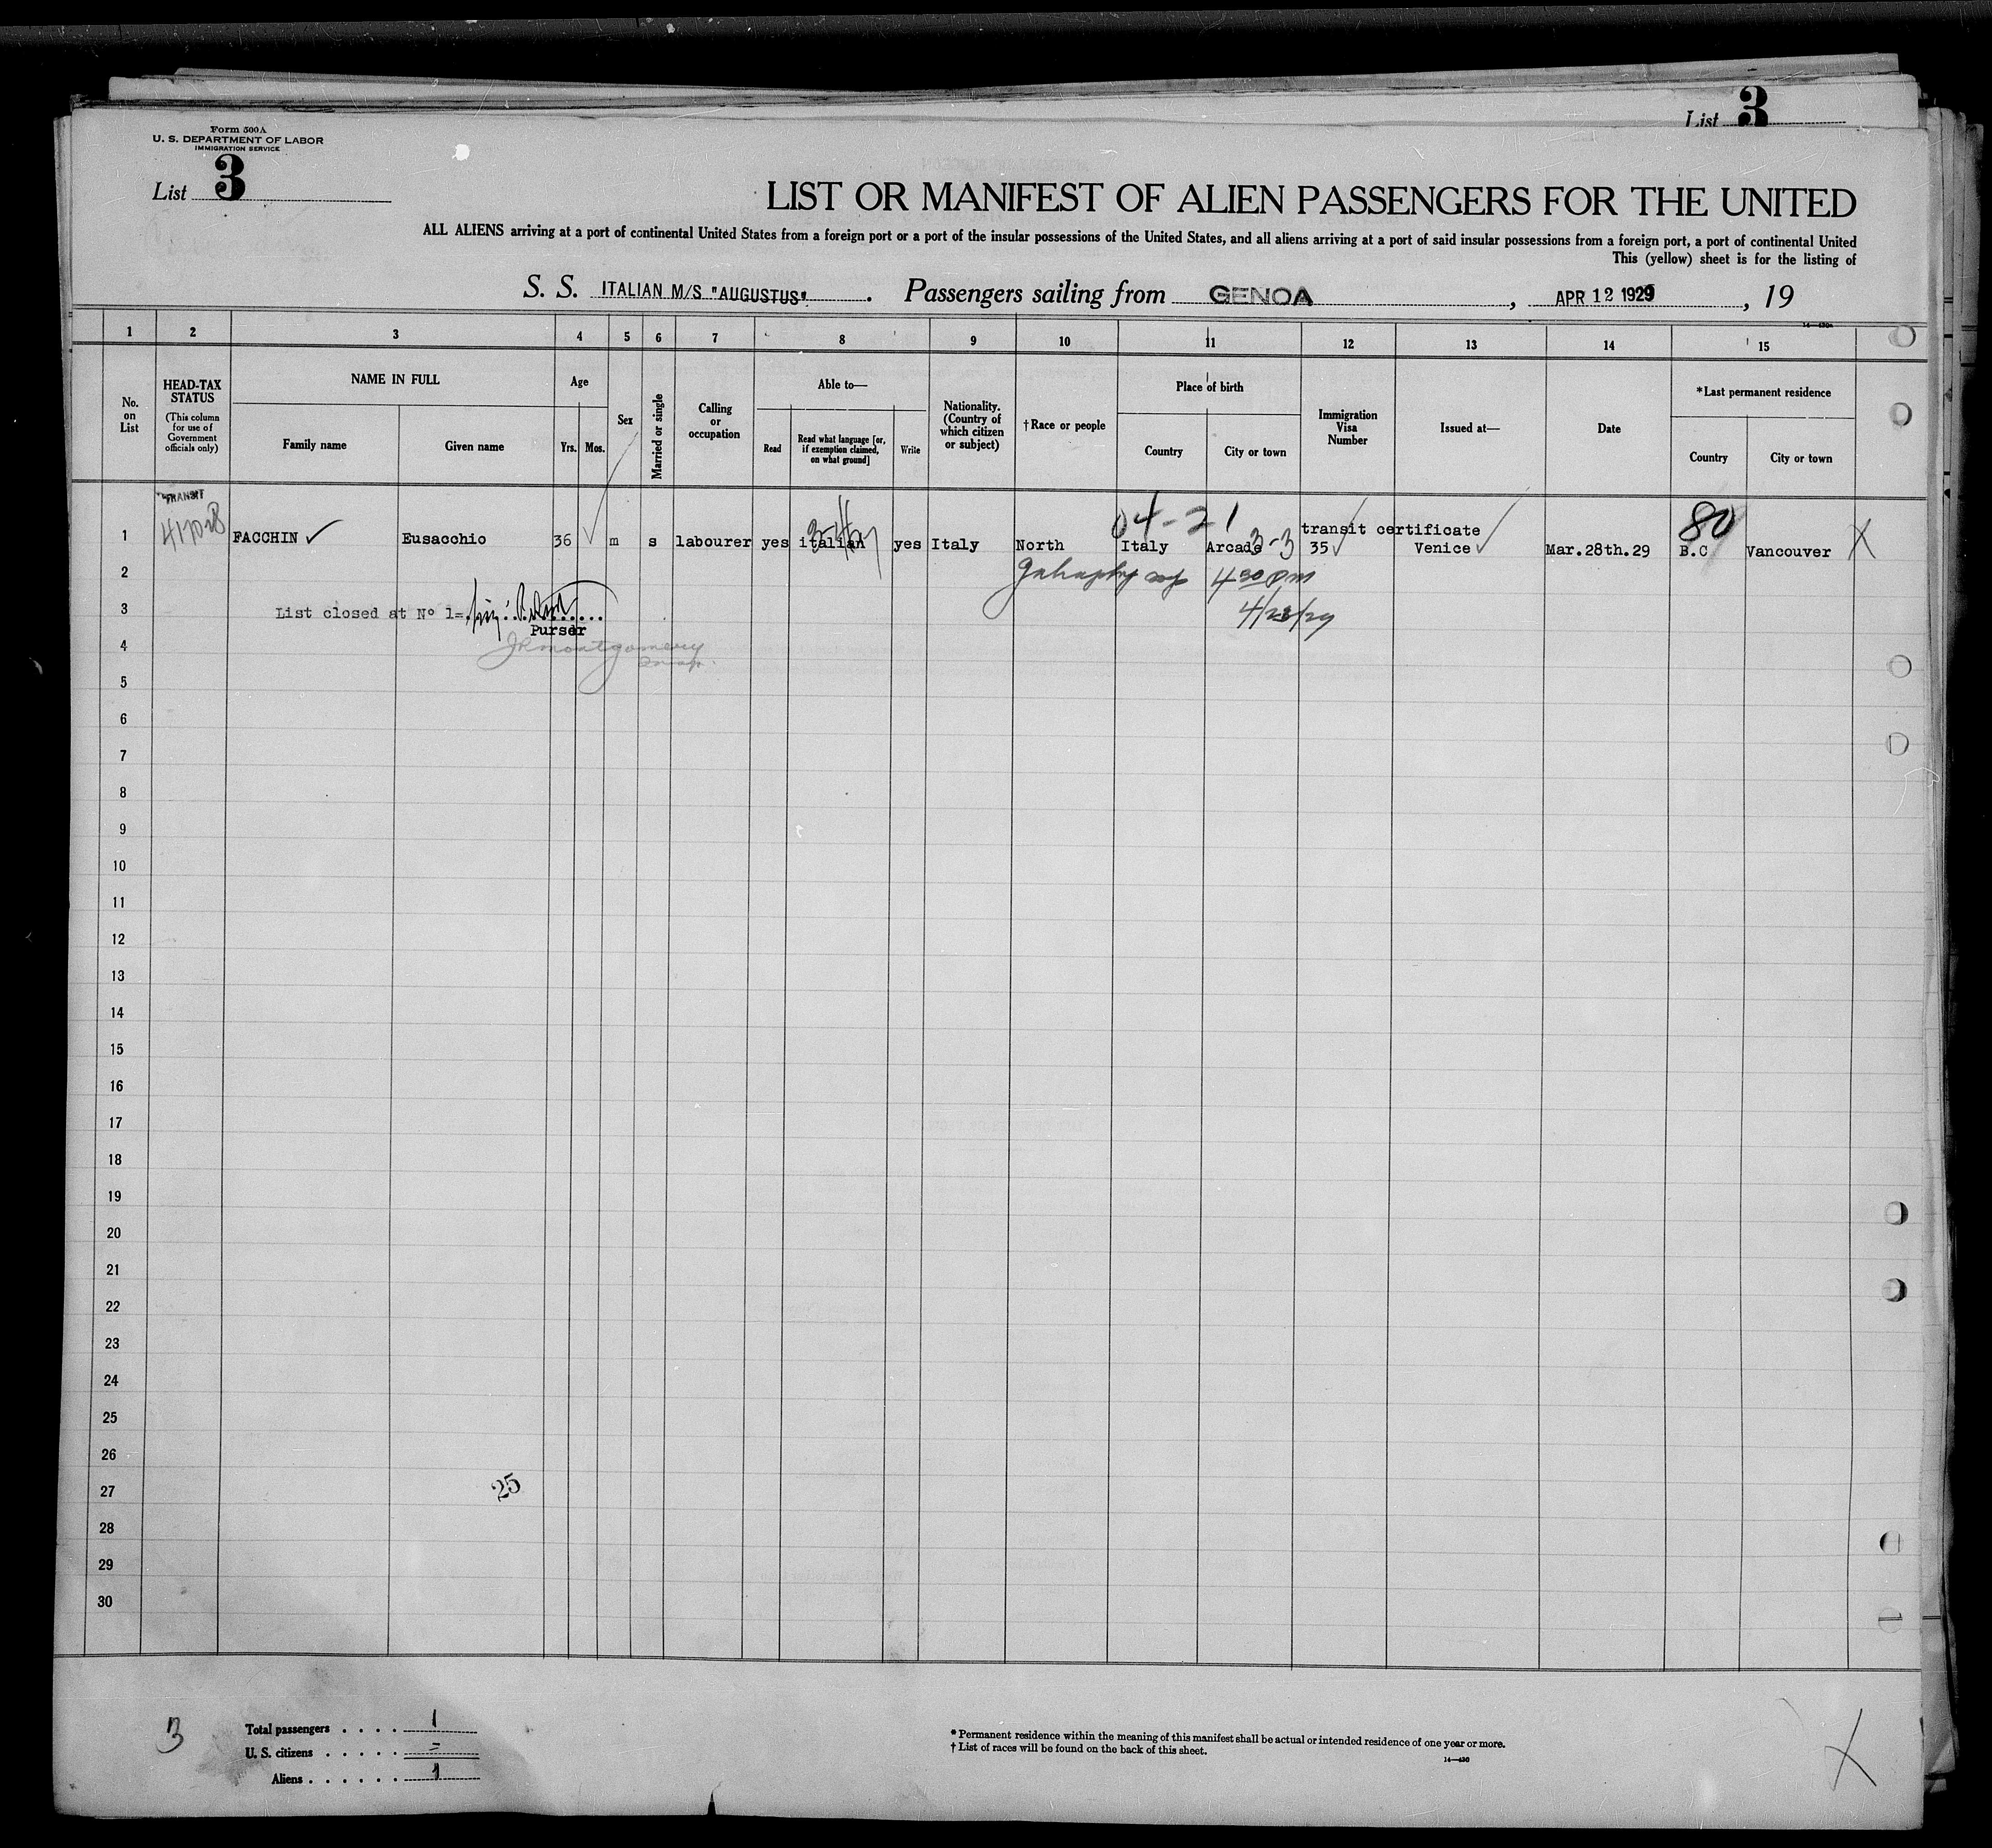 List 3
Form 500A
U. S. DEPARTMENT OF LABOR
IMMIGRATION SERVICE
List 3
LIST OR MANIFEST OF ALIEN PASSENGERS FOR THE UNITED
ALL ALIENS arriving at a port of continental United States from a foreign port or a port of the insular possessions of the United States, and all aliens arriving at a port of said insular possessions from a foreign port, a port of continental United
This (yellow) sheet is for the listing of
S. S. ITALIAN M/S "AUGUSTUS". Passengers sailing from GENOA, APR 12 1929, 19
14—430a
1 2 3 4 5 6 7 8 9 10 11 12 13 14 15
No. on List
HEAD-TAX STATUS
(This column for use of Government officials only)
NAME IN FULL
Family name
Given name
Age
Yrs.
Mos.
Sex
Married or single
Calling or occupation
Able to—
Read
Read what language [or, if exemption claimed, on what ground]
Write
Nationality. (Country of which citizen or subject)
†Race or people
Place of birth
Country
City or town
Immigration Visa Number
Issued at—
Date
*Last permanent residence
Country
City or town
TRANSIT
04-21
80
3-3
transit certificate
1 FACCHIN Eusacchio 36 m s labourer yes italian yes Italy North Italy Arcade 35 Venice Mar.28th.29 B.C Vancouver X
2
4 30 pm
3 List closed at Nº 1=
4/23/29
Purser
4 JR Montgomery
5
6
7
8
9
10
11
12
13
14
15
16
17
18
19
20
21
22
23
24
25
26
27
25
28
29
30
3
Total passengers . . . . 1
U. S. citizens . . . . . =
Aliens . . . . . . 1
* Permanent residence within the meaning of this manifest shall be actual or intended residence of one year or more.
† List of races will be found on the back of this sheet.
14—430
X